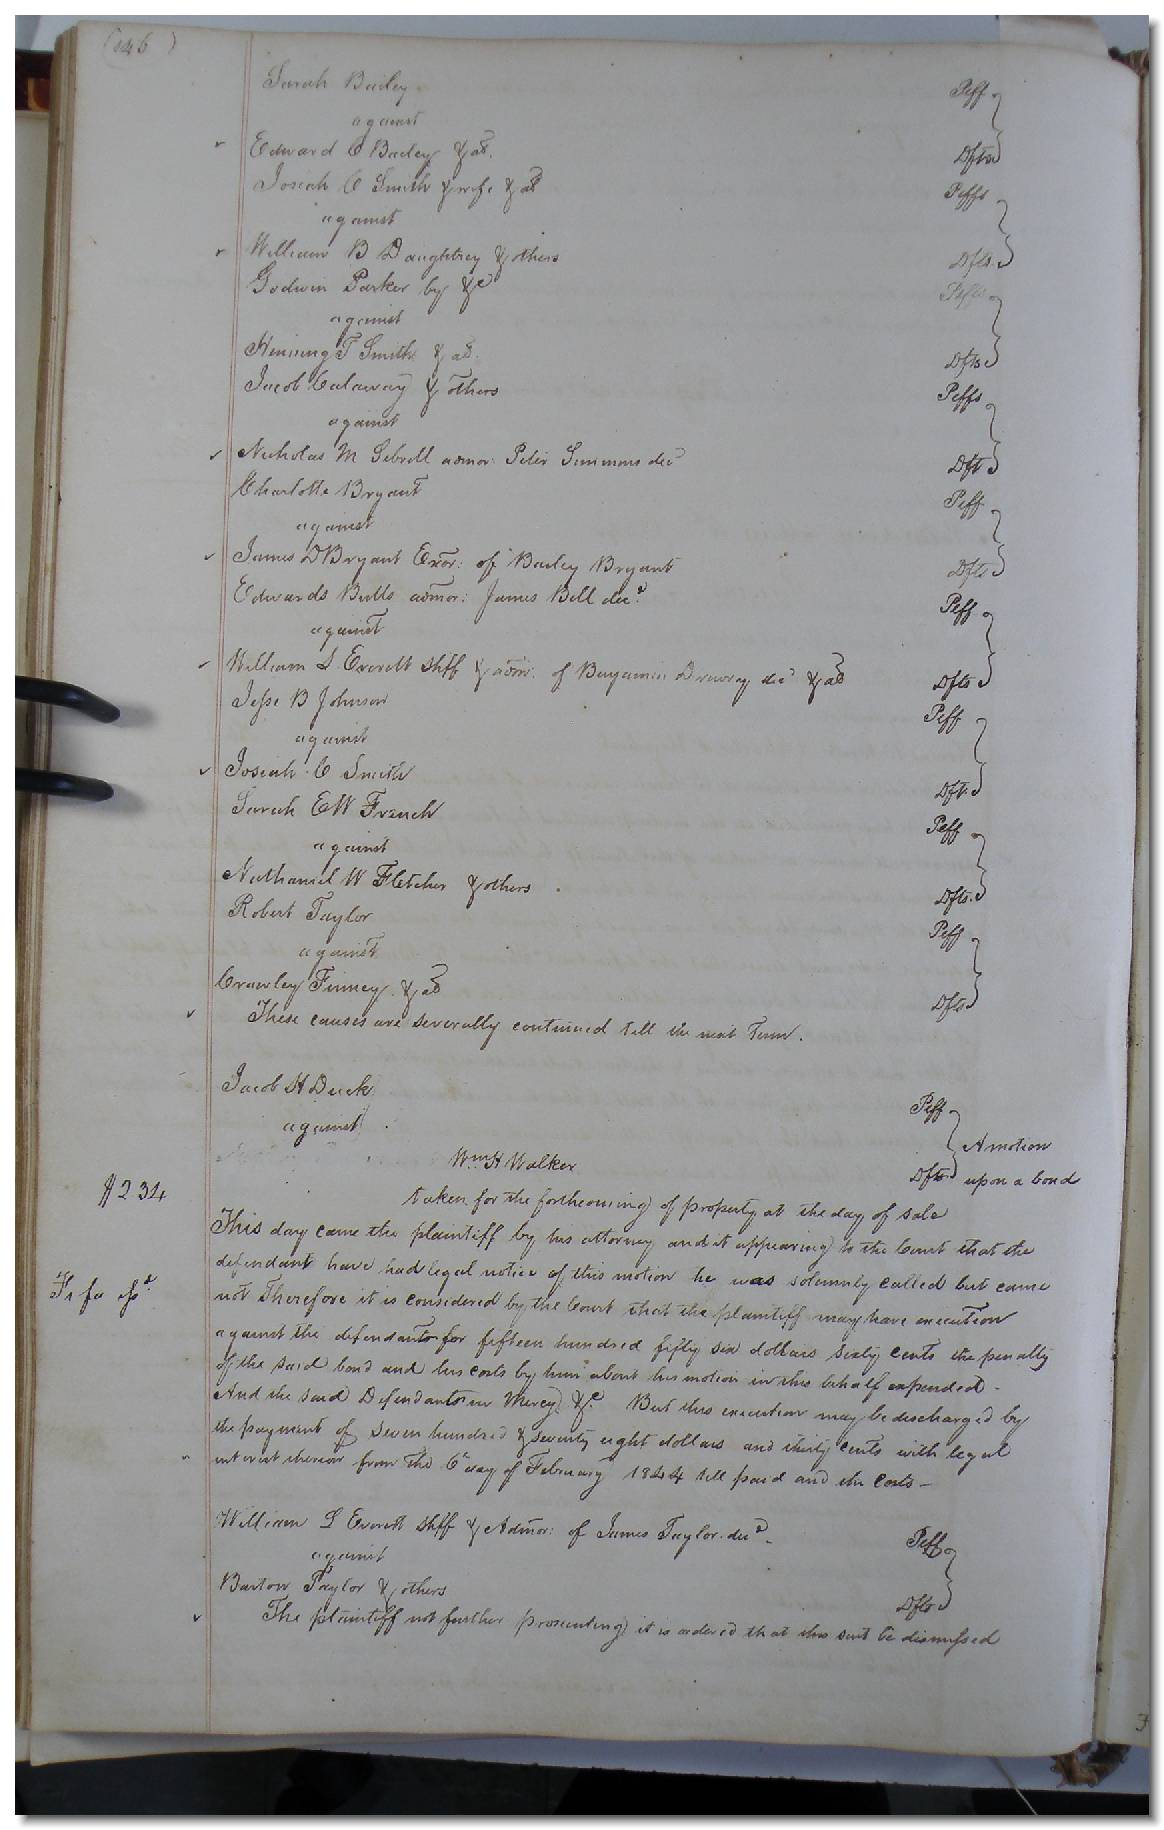 (146)
Sarah Bailey Plff
against
Edward C Bailey & als. Dfts
Josiah C Smith & wife & als Plffs
against
William B Daughtrey & others Dfts
Godwin Parker by &c Plffs
against
Henning T Smith & als. Dfts
Jacob Calaway & others Plffs
against
Nicholas M Sebrell admor: Peter Simmons decd Dft
Charlotte Bryant Plff
against
James D Bryant Exor: of Bailey Bryant Dfts
Edwards Butts admor: James Bell decd. Plff
against
William S Everett Shff & admr. of Benjamin Drewry decd & als Dfts
Jesse B Johnson Plff
against
Josiah C Smith Dft.
Sarah E W French Plff
against
Nathaniel W Fletcher & others Dfts.
Robert Taylor Plff
against
Crawley Finney & als Dfts
These causes are severally continued till the next Term.
Jacob H Duck Plff
against A motion
Wm H Walker Dfts upon a bond
#234 taken for the forthcoming of property at the day of sale
This day came the plaintiff by his attorney and it appearing to the Court that the
defendant have had legal notice of this motion he was solemnly called but came
Fi fa isd. not Therefore it is considered by the Court that the plaintiff may have execution
against the defendants for fifteen hundred fifty six dollars sixty cents the penalty
of the said bond and his costs by him about his motion in this behalf expended -
And the said Defendants in Mercy &c. But this execution may be discharged by
the payment of Seven hundred & seventy eight dollars and thirty cents with legal
interest thereon from the 6th day of February 1844 till paid and the costs -
William S Everett Shff & Admor: of James Taylor decd. Plff
against
Barton Taylor & others Dfts
The plaintiff not further prosecuting it is ordered that this suit be dismissed